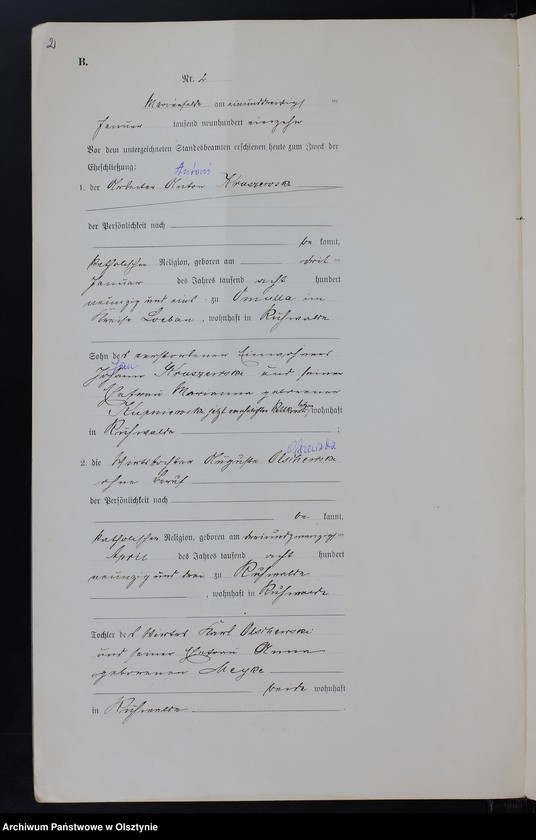 2
B.
Nr. 2
Marienfelde am einunddreißigsten
Januar tausend neunhundert vierzehn
Vor dem unterzeichneten Standesbeamten erschienen heute zum Zweck der
Eheschließung:
Antoni
1. der Arbeiter Anton Kraszewski
der Persönlichkeit nach
be kannt,
katholischer Religion, geboren am drit
Januar des Jahres tausend acht hundert
neunzig und eins zu Omulla im
Kreise Loebau, wohnhaft in Ruhwalde
Sohn des verstorbenen Einwohners
Jan
Johann Kraszewski und seiner
Ehefrau Marianna geborenen
jetzt wohnhaft
in Ruhwalde ;
Olszewska
2. die Wirtstochter Auguste Olschewski
ohne Beruf
der Persönlichkeit nach
be kannt,
katholischer Religion, geboren am dreiundzwanzigsten
April des Jahres tausend acht hundert
neunzig und drei zu Ruhwalde
, wohnhaft in Ruhwalde
Tochter des Wirtes Karl Olschewski
und seiner Ehefrau Anna
geborenen
beide wohnhaft
in Ruhwalde .
Archiwum Państwowe w Olsztynie